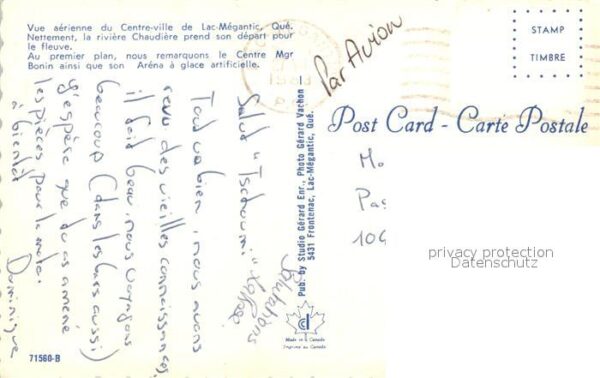 Vue aérienne du Centre-ville de Lac-Mégantic, Qué.
Nettement, la rivière Chaudière prend son départ pour
le fleuve.
Au premier plan, nous remarquons le Centre Mgr
Bonin ainsi que son Aréna à glace artificielle.
Par Avion
STAMP
TIMBRE
Post Card - Carte Postale
Salut "Tschoumi"
Tout va bien, nous avons
revu des vieilles connaissances,
il fait beau, nous voyageons
beaucoup (dans les bars aussi)
J'espère que tu as amené
les pièces pour la moto.
à bientôt
Dominique
Pub. by Studio Gérard Enr., Photo Gérard Vachon
5431 Frontenac, Lac-Mégantic, Qué.
Made in Canada
Imprimé au Canada
71560-B
Pa
104
privacy protection
Datenschutz